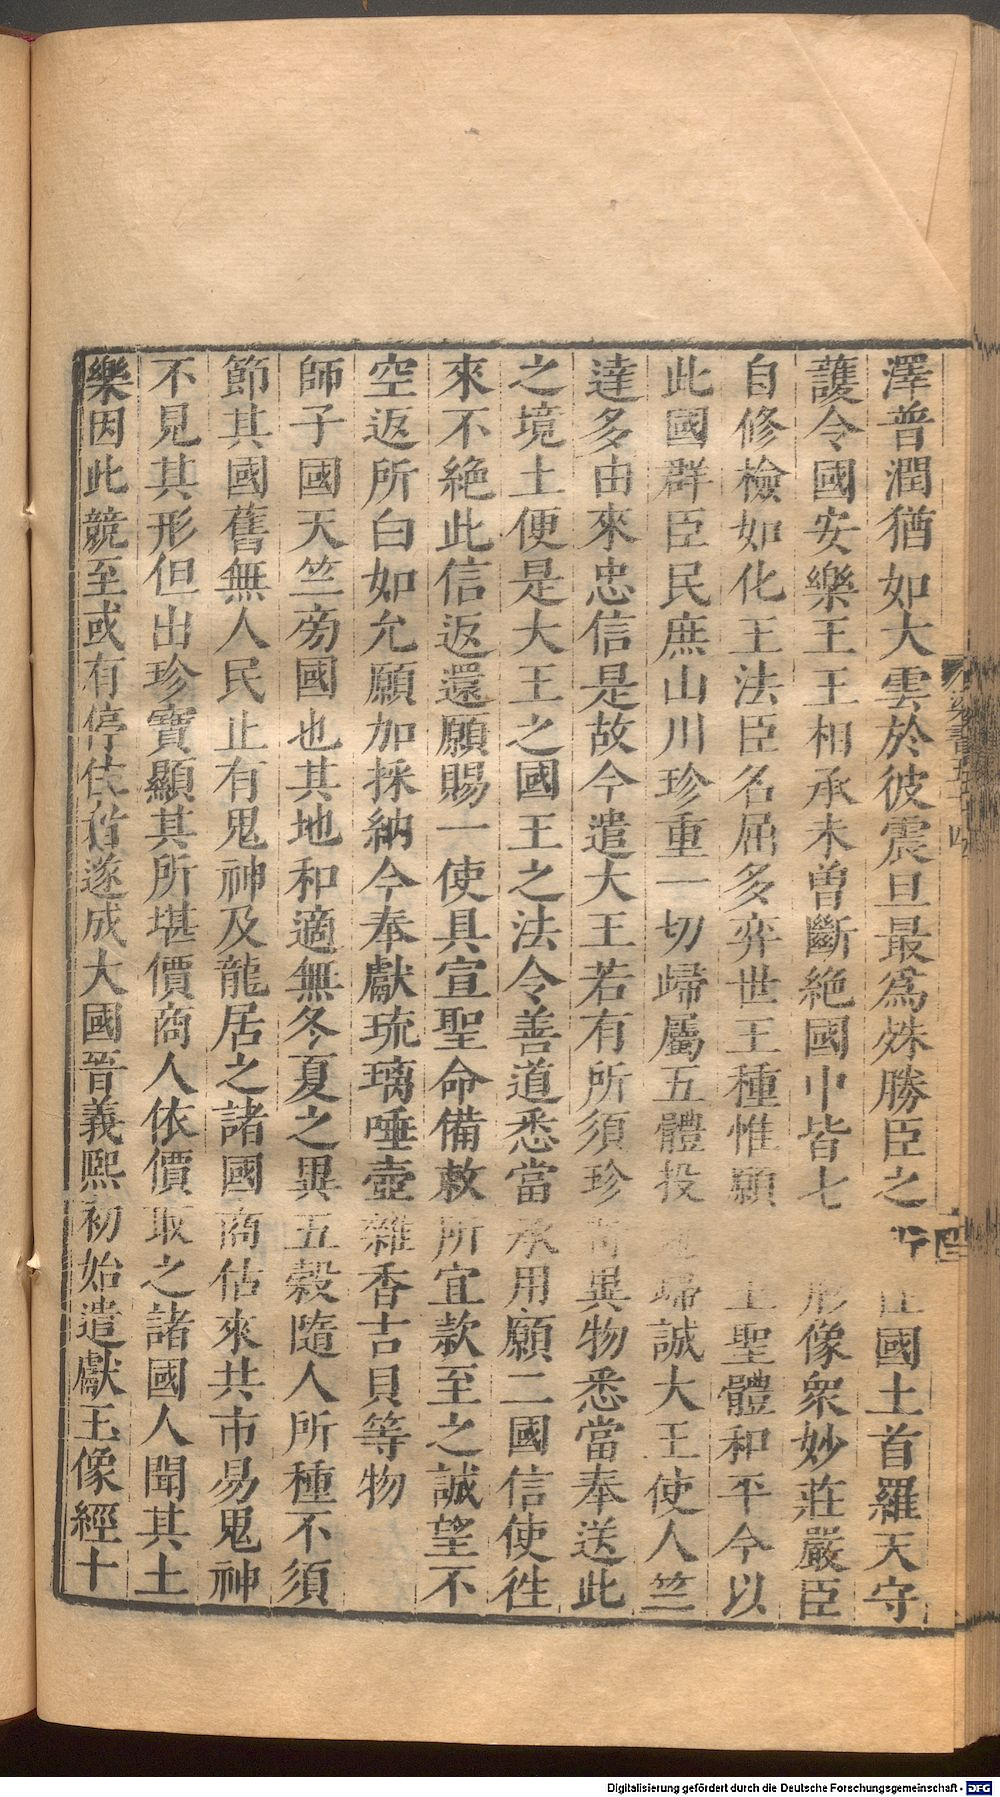 澤普潤猶如大雲於彼震旦最爲姝勝臣之 國土首羅天守
護令國安樂王王相承未曾斷絕國中皆七 形像衆妙莊嚴臣
自修檢如化王法臣名屈多弈世王種惟願 王聖體和平今以
此國群臣民庶山川珍重一切歸屬五體投 歸誠大王使人竺
達多由來忠信是故今遣大王若有所須珍 異物悉當奉送此
之境土便是大王之國王之法令善道悉當承用願二國信使徃
來不絕此信返還願賜一使具宣聖命備敕所宜款至之誠望不
空返所白如允願加採納今奉獻琉璃唾壺雜香吉貝等物
師子國天竺旁國也其地和適無冬夏之異五穀隨人所種不須
節其國舊無人民止有鬼神及龍居之諸國商估來共市易鬼神
不見其形但出珍寶顯其所堪價商人依價取之諸國人聞其土
樂因此競至或有停住者遂成大國晉義熙初始遣獻玉像經十
Digitalisierung gefördert durch die Deutsche Forschungsgemeinschaft - DFG